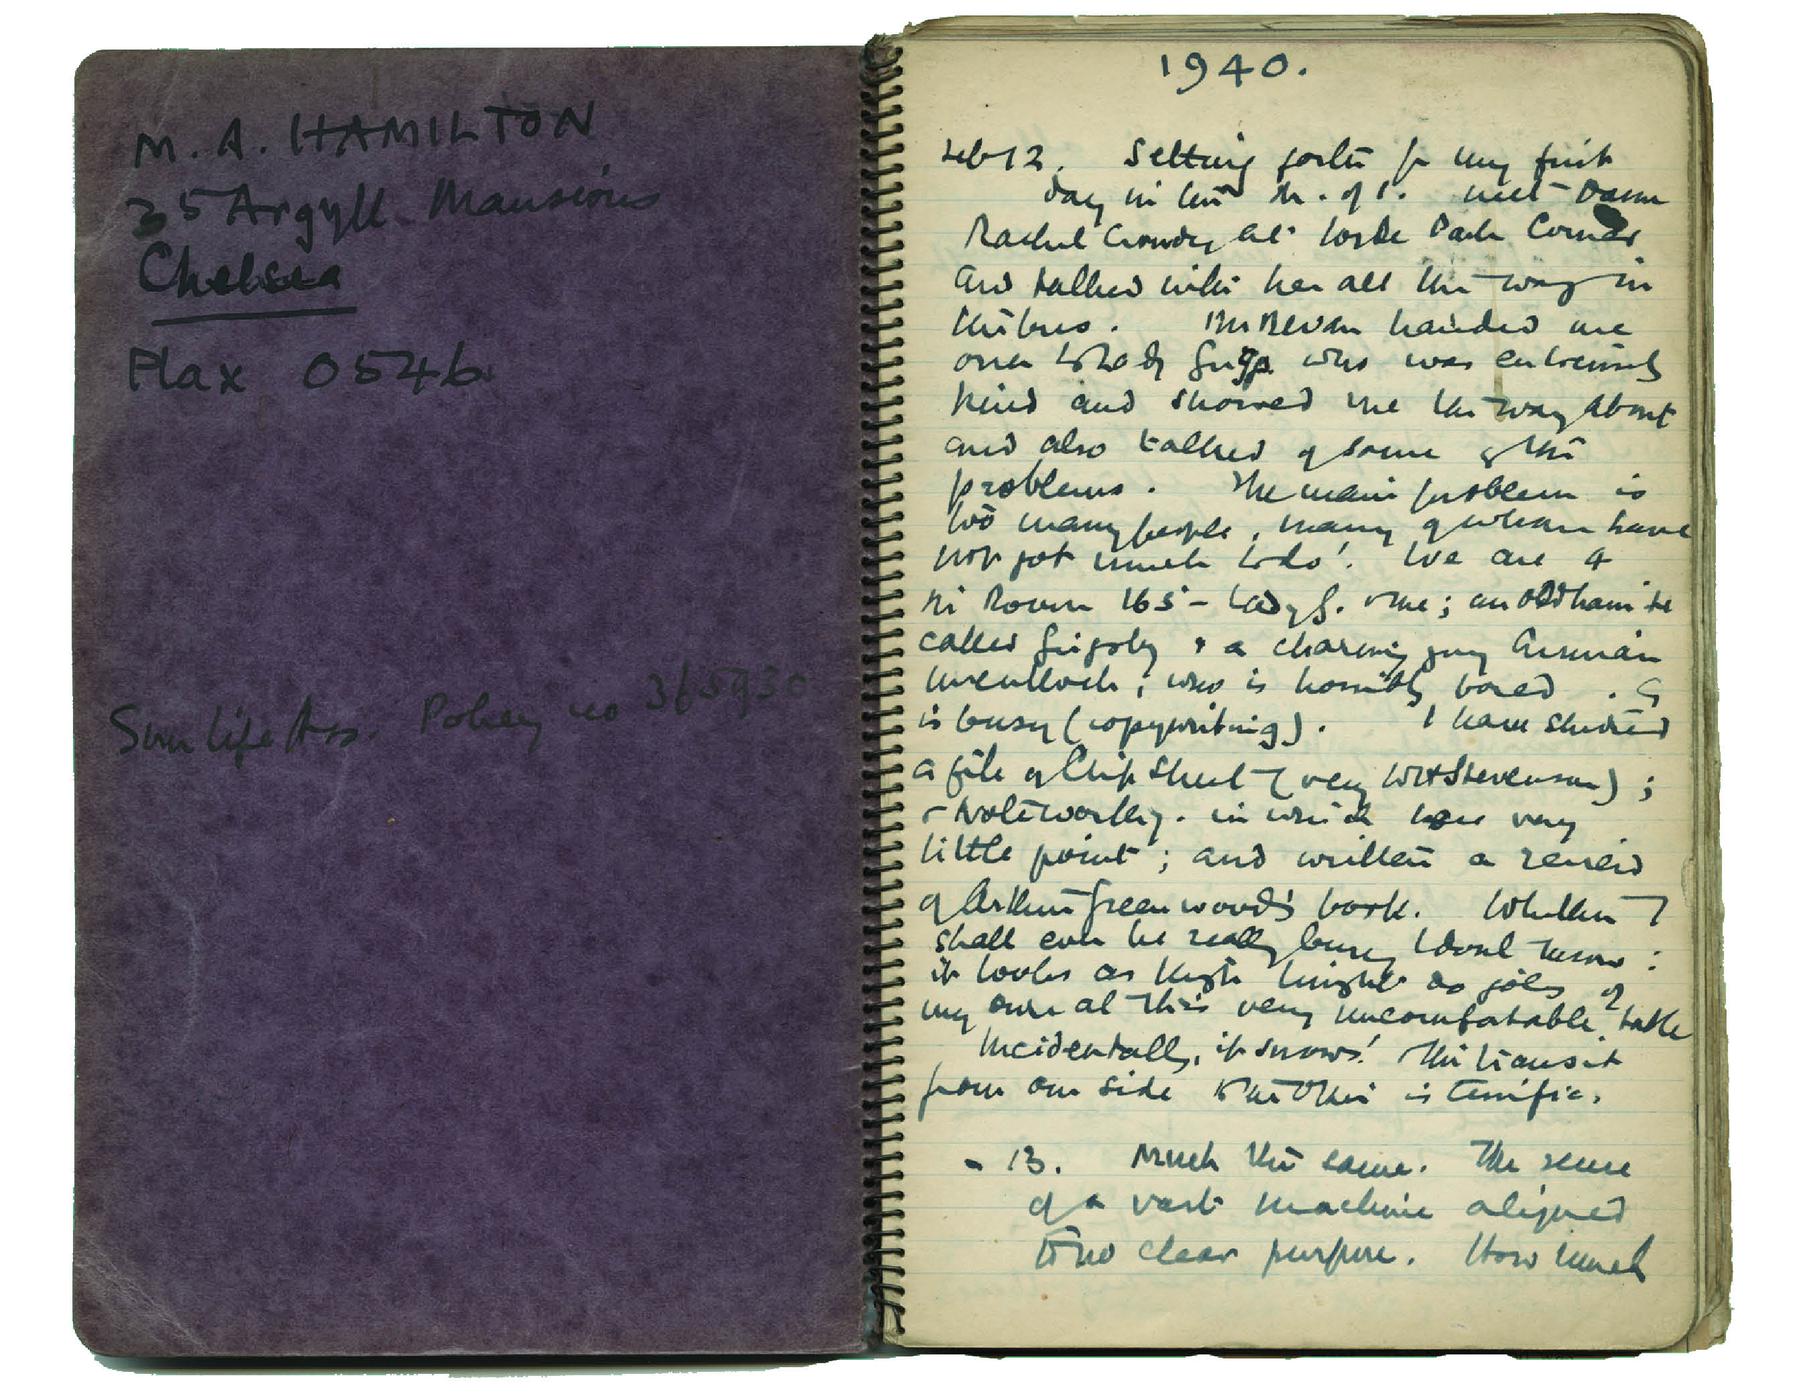 M. A. HAMILTON
35 Argyll Mansions
Chelsea
Flax 0546
Sun Life Ass. Policy no 365930
1940.
Feb 12. Setting forth for my first
day in the M. of I. met Dame
Rachel Crowdy at Hyde Park Corner
and talked with her all the way in
the bus. Mr Bevan handed me
over to Lady Grigg who was extremely
kind and showed me the way about
and also talked of some of the
problems. The main problem is
too many people, many of whom have
not got much to do! We are 4
in Room 165 - Lady G. & me; an
called Grigsby & a charming young
who is horribly bored. G
is busy (copywriting). I have studied
a file of Clip Sheet (very Stevenson);
& Noteworthy. in which I see very
little point; and written a review
of Arthur Greenwood's book. Whether I
shall ever be really busy I don't know:
it looks as though I might do jobs of
my own at this very uncomfortable table
Incidentally, it snows! The transit
from one side to the other is terrific.
- 13. Much the same. The sense
of a vast machine aligned
to no clear purpose. How much